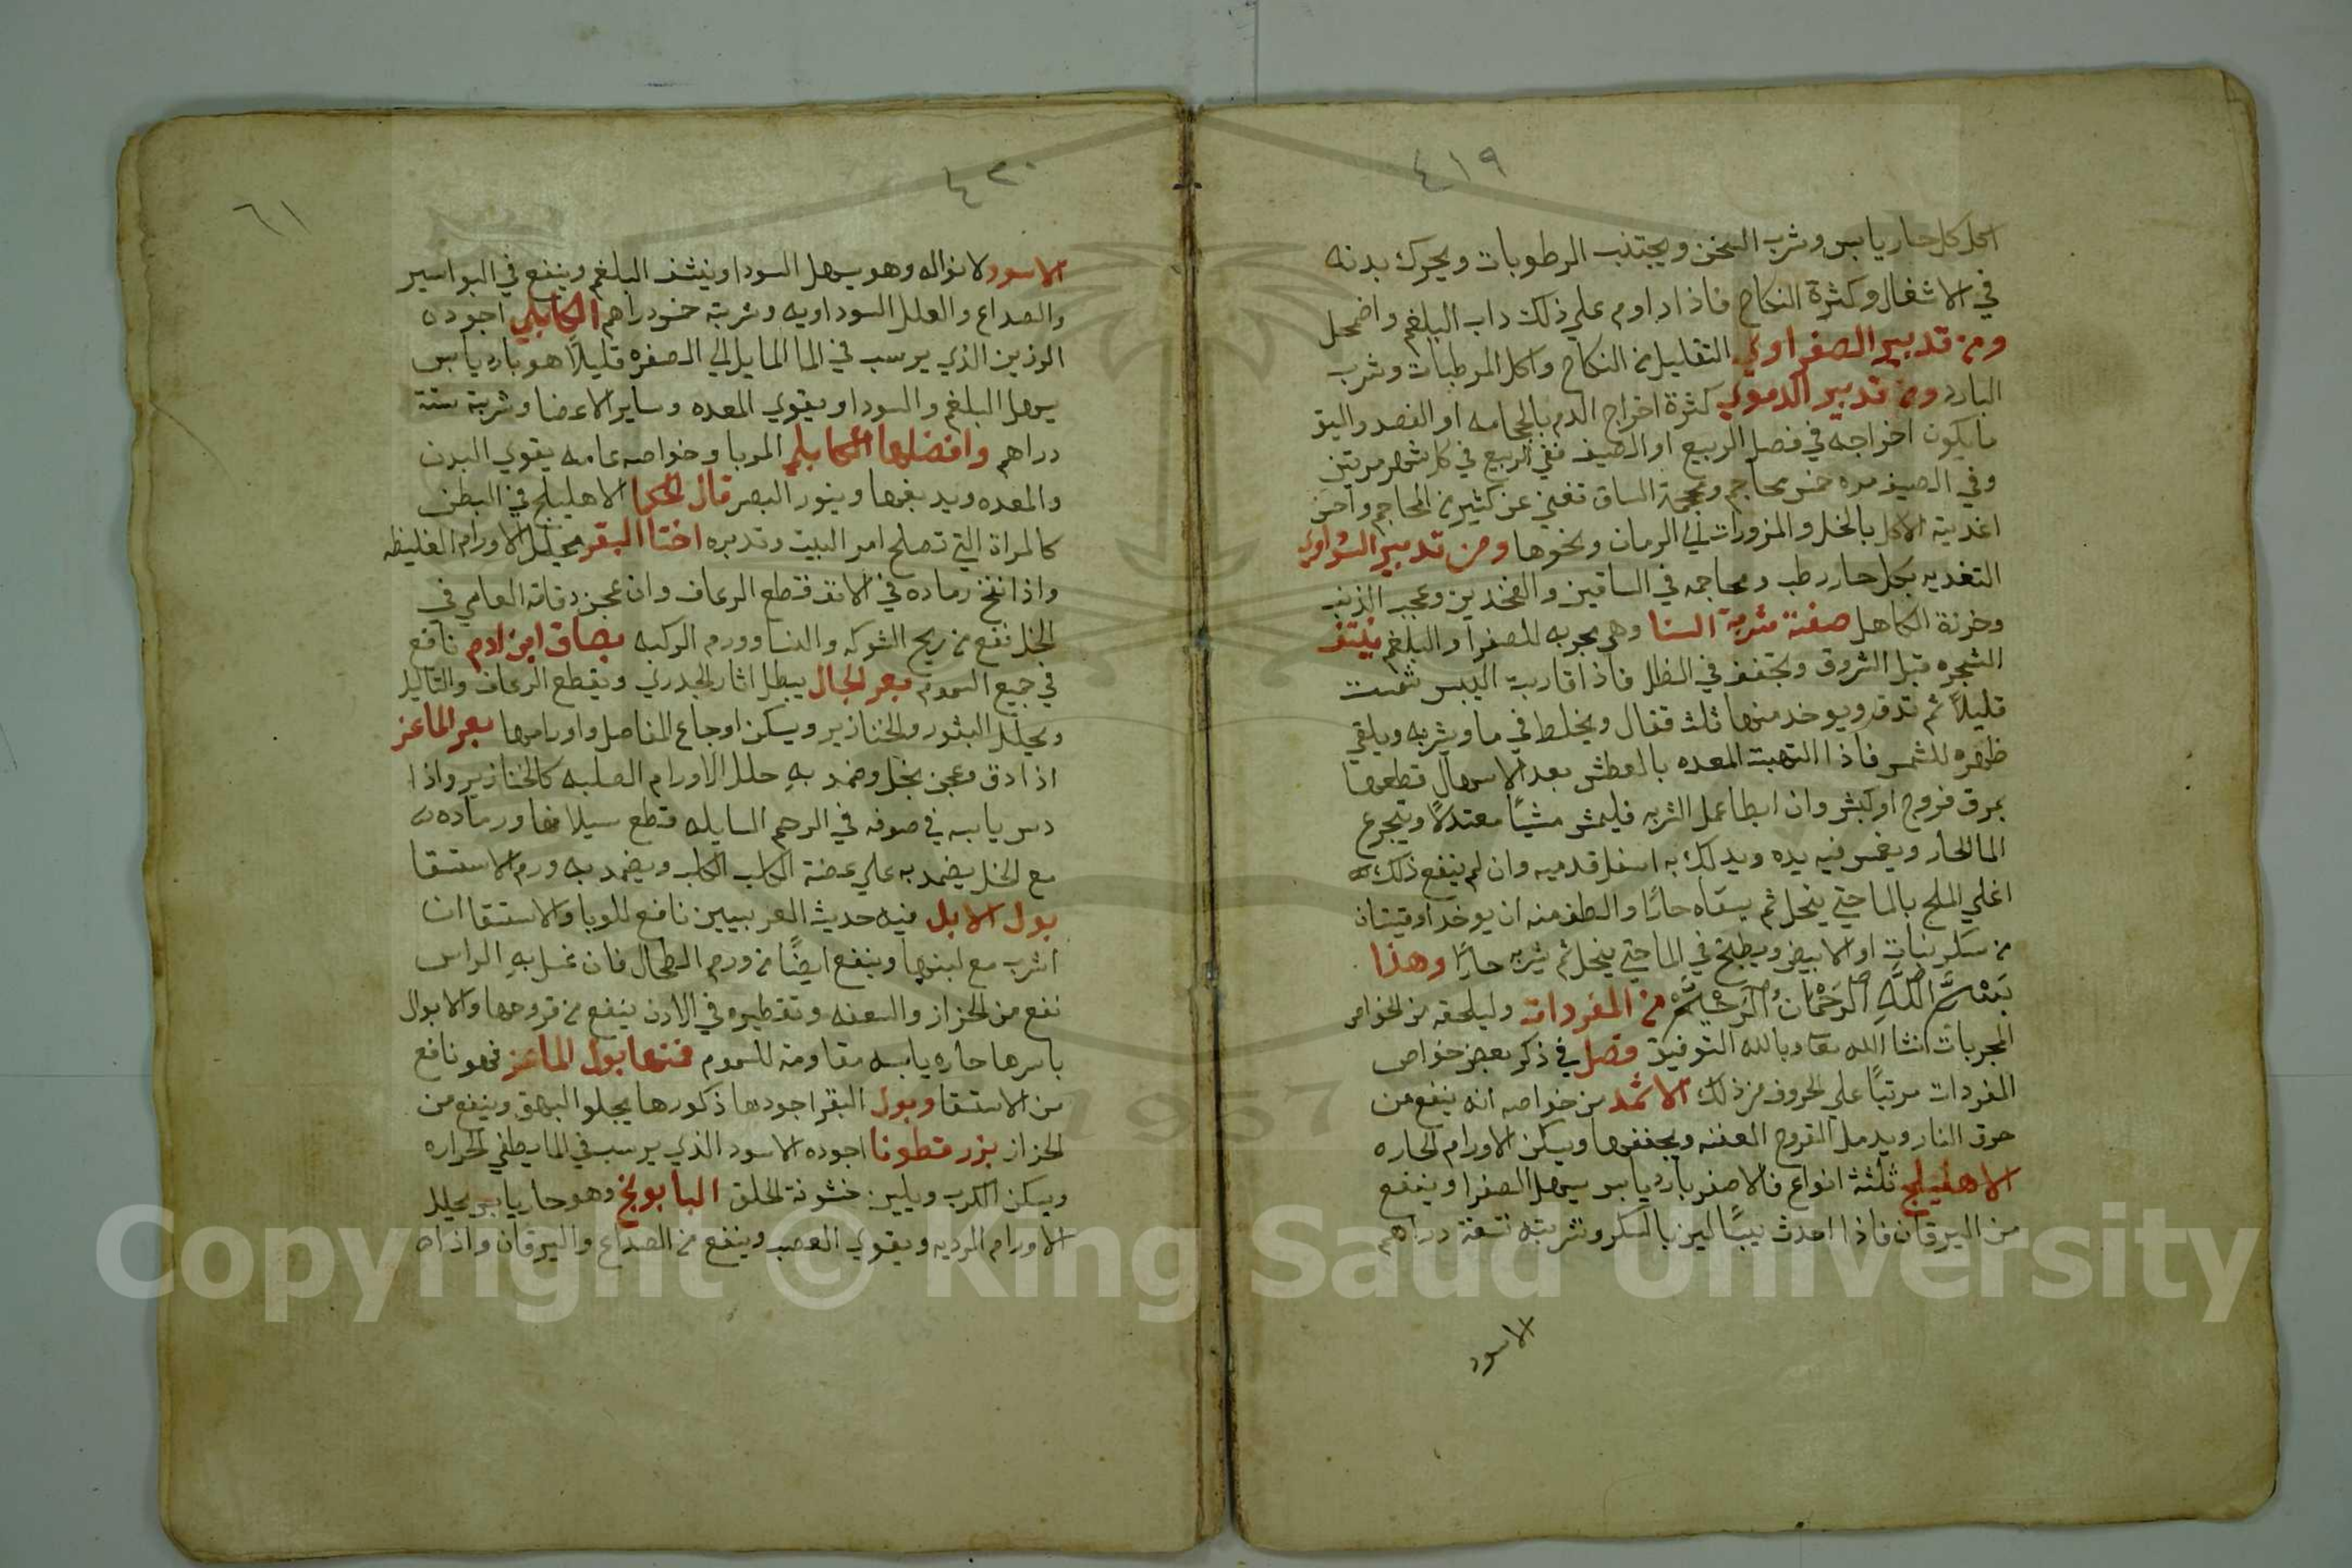 ٤١٩
اكل كل حار يابس وشرب السخن ويجتنب الرطوبات ويحرك بدنه
في الاشغال وكثرة النكاح فاذا داوم علي ذلك داب البلغم واضمحل
ومن تدبير الصفراوي التقليل من النكاح واكل المرطبات وشرب
البارد ومن تدبير الدموي كثرة اخراج الدم بالحجامه او الفصد واليق
مايكون اخراجه في فصل الربيع او الصيف ففي الربيع في كل شهر مرتين
وفي الصيف مره خمس محاجم وحجمة الساق تغني عن كثير من المحاجم واحسن
اغذيته الاكل بالخل والمزورات بحب الرمان ونحوها ومن تدبير السوداوي
التغديه بكل حار رطب ومحاجمه في الساقين والفخدين وعجب الذنب
وخرزة الكاهل صفة شربة السنا وهي مجربه للصفرا والبلغم ينتف
الشجره قبل الشروق وتجفف في الظل فاذا قاربت اليبس شمست
قليلاً ثم تدق ويوخد منها ثلث قفال ويخلط في ما ويشربه ويلقي
ظهره للشمس فاذا التهبت المعده بالعطش بعد الاسهال قطعها
بمرق فروج او كبش وان ابطا عمل الشربه فليمش مشيًا معتدلاً ويتجرع
الما الحار ويغمس فيه يده ويدلك به اسفل قدميه وان لم ينفع ذلك
اغلي الملح بالما حتي ينحل ثم يسقاه حارًا والطف منه ان يوخد اوقيتان
من سكر نبات او الابيض ويطبخ في الما حتي ينحل ثم يشربه حارًا وهذا
بسم الله الرحمان الرحيم من المفردات وليلحقه من الخواص
المجربات انشا الله تعا وبالله التوفيق فصل في ذكر بعض خواص
المفردات مرتبًا علي الحروف فمن ذلك الاثمد من خواصه انه ينفع من
حرق النار ويدمل القروح العفنه ويجففها ويسكن الاورام الحاره
الاهليلج ثلثة انواع فالاصفر بارد يابس يسهل الصفرا وينفع
من اليرقان فاذا احدث يبسًا لين بالسكر وشربته تسعة دراهم
الاسود
٤٢٠
٦١
الاسود لانواله وهو يسهل السودا وينشف البلغم وينفع في البواسير
والصداع والعلل السوداويه وشربته خمس دراهم الكابلي اجوده
الرزين الذي يرسب في الما المايل الي الصفره قليلاً هو بارد يابس
يسهل البلغم والسودا ويقوي المعده وساير الاعضا وشربته ستة
دراهم وافضلها الكابلي المربا وخواصه عامه يقوي البدن
والمعده ويدبغها وينور البصر قال الحكما الاهليلج في البطن
كالمراة التي تصلح امر البيت وتدبره اخثا البقر يحلل الاورام الغليظه
واذا نفخ رماده في الانف قطع الرعاف وان عجن دقاقه العامي في
الخل نفع من ريح الشوكه والنسا وورم الركبه بصاق ابن ادم نافع
في جميع السموم بعر الجمال يبطل اثار الجدري ويقطع الرعاف والثاليل
ويحلل البثور والخنازير ويسكن اوجاع المفاصل واورامها بعر الماعز
اذا دق وعجن بخل وضمد بهِ حلل الاورام الصلبه كالخنازير واذا
دس يابسه في صوفه في الرحم السايله قطع سيلانها ورماده
مع الخل يضمد به علي عضة الكلب الكلب ويضمد به ورم الاستسقا
بول الابل فيه حديث العرنيين نافع للوبا والاستسقا ان
اشرب مع لبنها وينفع ايضًا من ورم الطحال فان غسل بهِ الراس
نفع من الحزاز والسعفه وتقطيره في الادن ينفع من قروحها والابوال
باسرها حاره يابسه مقاومة للسموم فمنها بول الماعز فهو نافع
من الاستسقا وبول البقر اجودها ذكورها يجلوا البهق وينفع من
الحزاز بزر قطونا اجوده الاسود الذي يرسب في الما يطفي الحراره
ويسكن الكرب ويلين خشونة الحلق البابونج وهو حار يابس يحلل
الاورام الرديه ويقوي العصب وينفع من الصداع واليرقان واذا